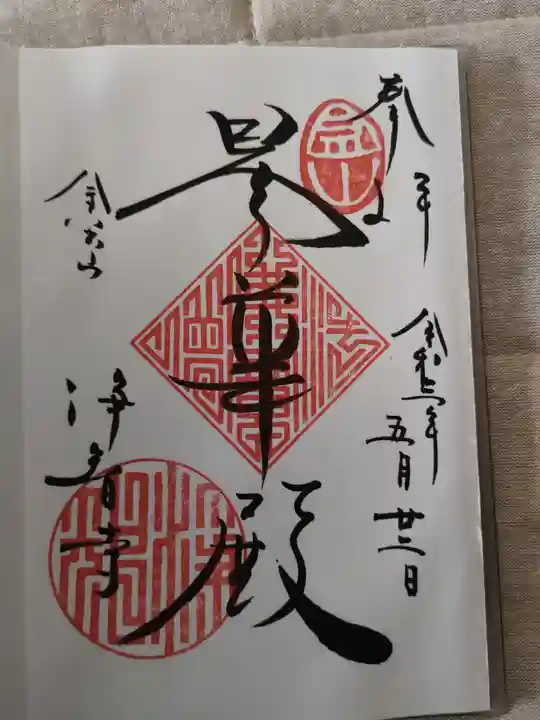 奉拝
令和三年
五月廿二日
曇華殿
金宝山
浄智寺